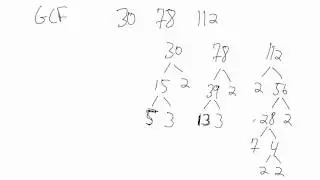 GCF 30 78 112
30 78 112
15 2 39 2 2 56
5 3 13 3 28 2
7 4
2 2